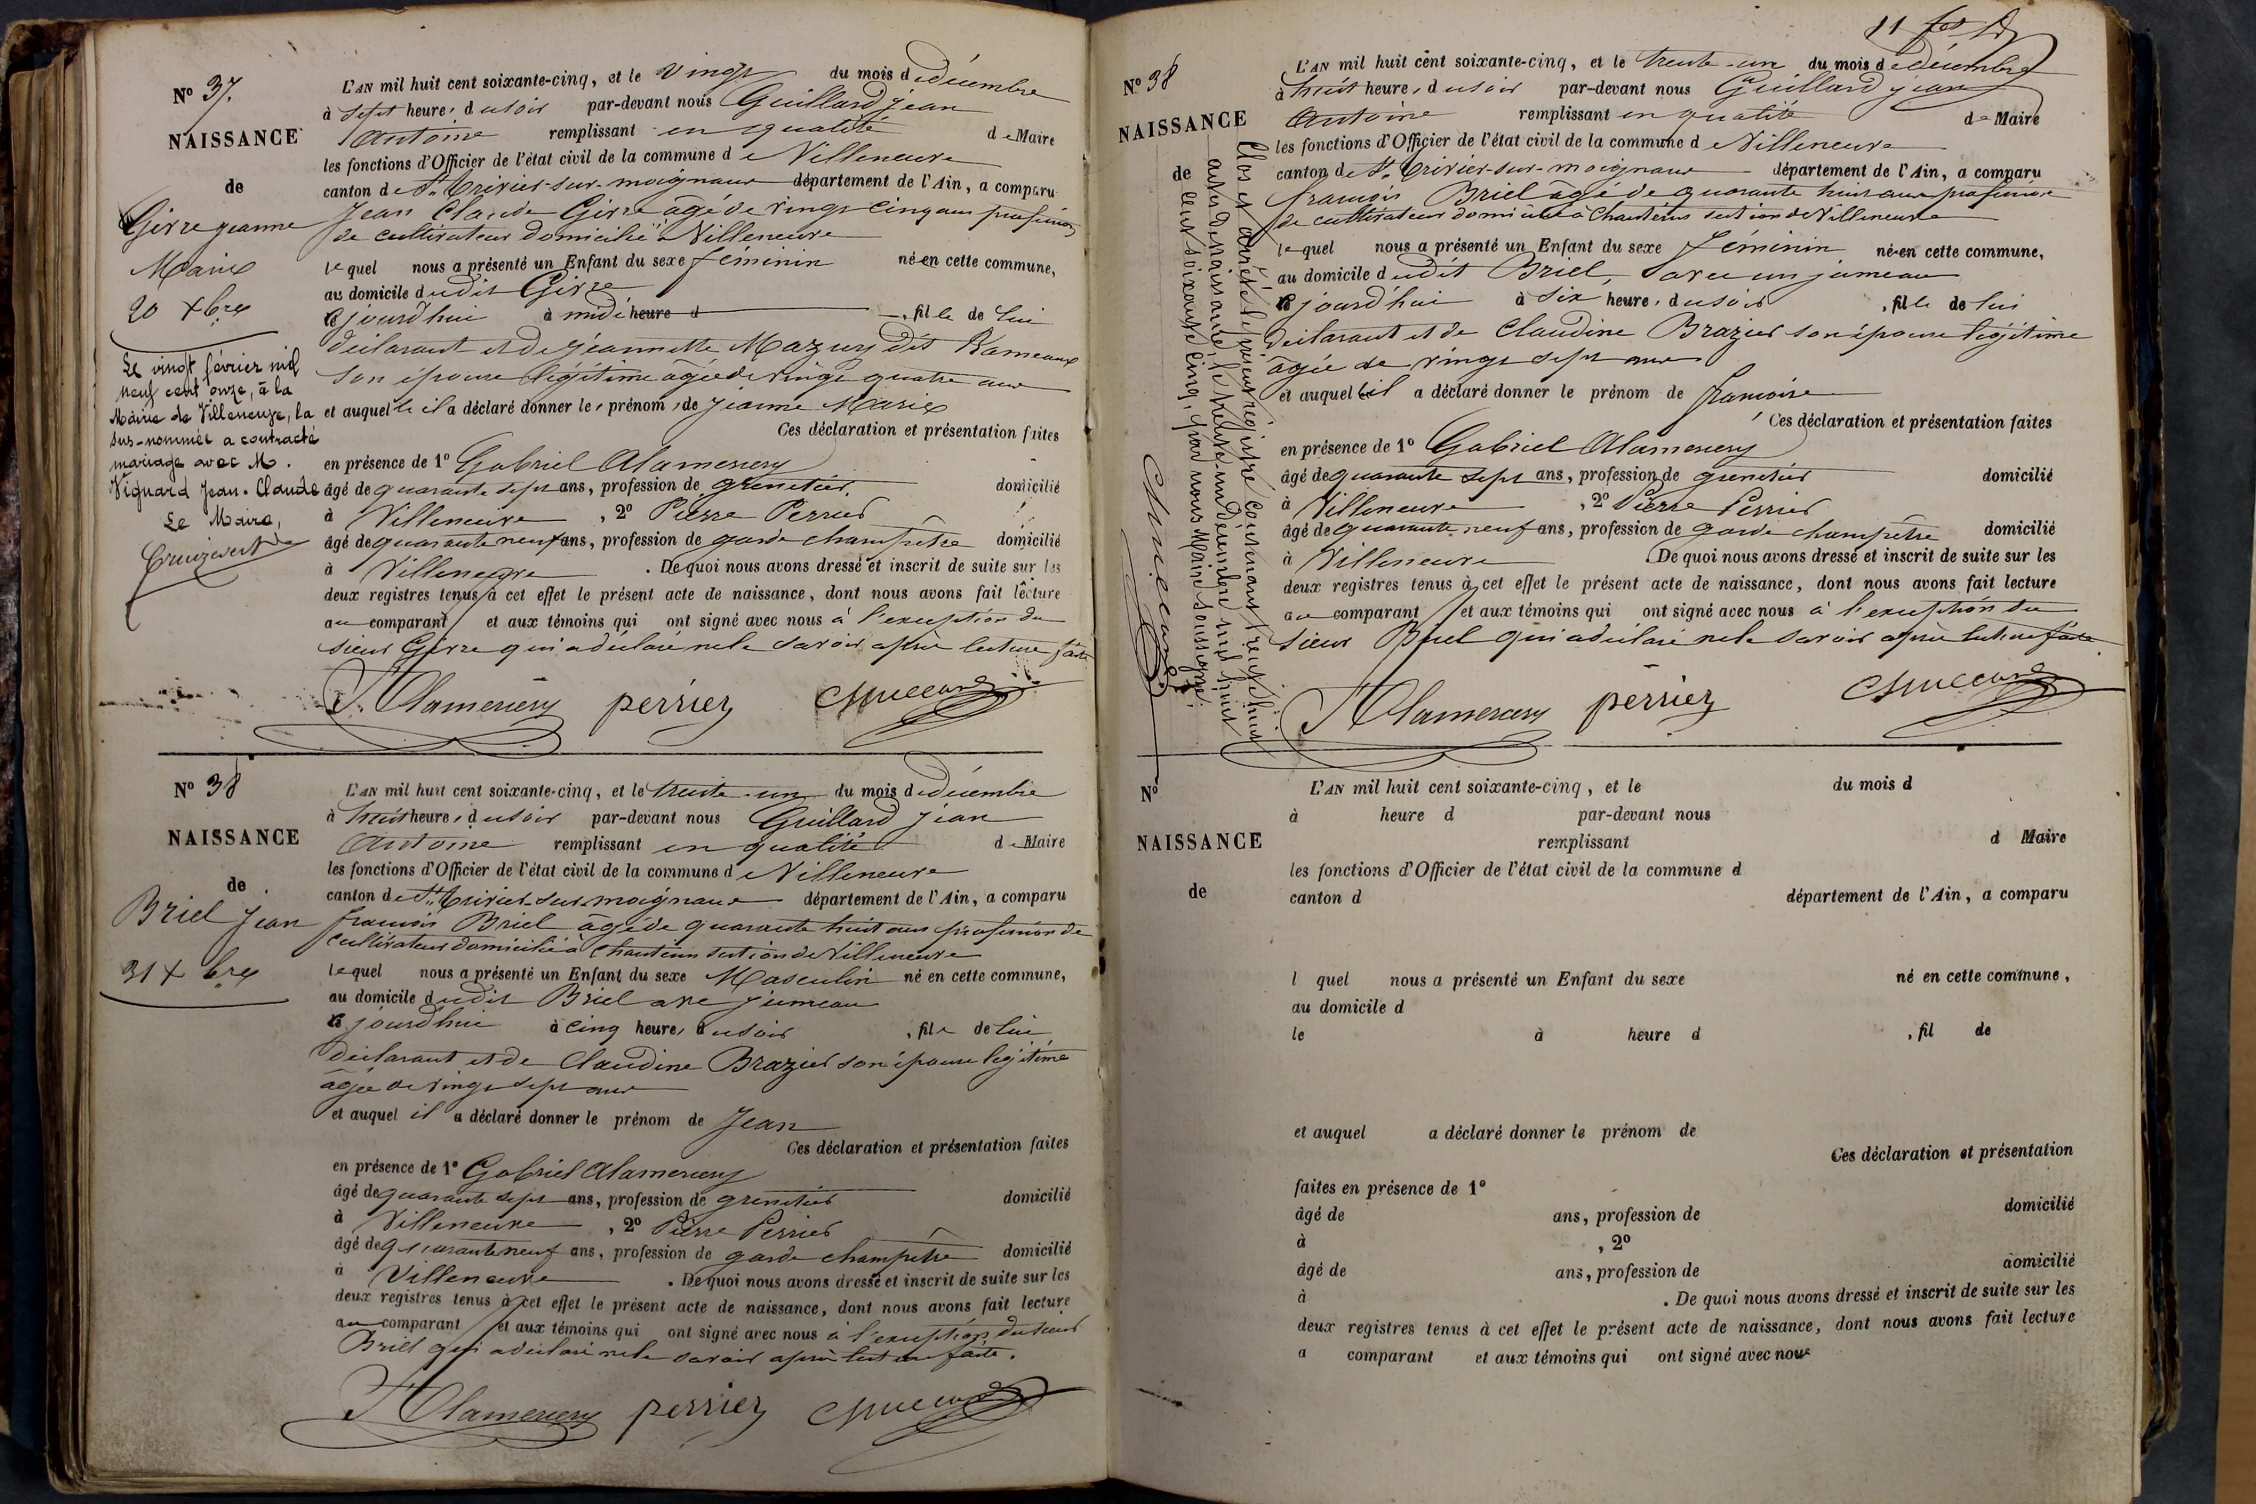 N° 37.
NAISSANCE
de
Girre jeanne
Marie
20 Xbre
Le vingt février mil
neuf cent onze, à la
Mairie de Villeneuve, la
sus-nommée a contracté
mariage avec M.
Viguard Jean-Claude
Le Maire,
L'AN mil huit cent soixante-cinq, et le vingt du mois de décembre
à sept heures du soir par-devant nous Guillard jean
Antoine remplissant en qualité de Maire
les fonctions d'Officier de l'état civil de la commune de Villeneuve
canton de St. Trivier-sur-moignans département de l'Ain, a comparu
Jean Claude Girre âgé de vingt cinq ans profession
de cultivateur domicilié à Villeneuve
lequel nous a présenté un Enfant du sexe féminin né en cette commune,
au domicile dudit Girre
ce jourd'hui à midi heure d , fille de lui
déclarant et de jeannette Mazuy dit Rameaux
son épouse légitime âgée de vingt quatre ans
et auquel le il a déclaré donner les prénoms de jeanne Marie
Ces déclaration et présentation faites
en présence de 1° Gabriel Alamercery
âgé de quarante sept ans, profession de grenetier domicilié
à Villeneuve , 2° Pierre Perrier
âgé de quarante neuf ans, profession de garde champêtre domicilié
à Villeneuve . De quoi nous avons dressé et inscrit de suite sur les
deux registres tenus à cet effet le présent acte de naissance, dont nous avons fait lecture
au comparant et aux témoins qui ont signé avec nous à l'exception du
sieur Girre qui a déclaré ne le savoir après lecture faite
Alamercery perrier
N° 38
NAISSANCE
de
Briel Jean
31 Xbre
L'AN mil huit cent soixante-cinq, et le trente-un du mois de décembre
à huit heures du soir par-devant nous Guillard jean
Antoine remplissant en qualité de Maire
les fonctions d'Officier de l'état civil de la commune de Villeneuve
canton de St. Trivier-sur-moignans département de l'Ain, a comparu
françois Briel âgé de quarante huit ans profession de
cultivateur domicilié à Chanteins section de Villeneuve
lequel nous a présenté un Enfant du sexe Masculin né en cette commune,
au domicile dudit Briel avec jumeau
ce jourd'hui à cinq heures du soir , fils de lui
déclarant et de Claudine Brazier son épouse légitime
âgée de vingt sept ans
et auquel il a déclaré donner le prénom de Jean
Ces déclaration et présentation faites
en présence de 1° Gabriel Alamercery
âgé de quarante sept ans, profession de grenetier domicilié
à Villeneuve , 2° Pierre Perrier
âgé de quarante neuf ans, profession de garde champêtre domicilié
à Villeneuve . De quoi nous avons dressé et inscrit de suite sur les
deux registres tenus à cet effet le présent acte de naissance, dont nous avons fait lecture
au comparant et aux témoins qui ont signé avec nous à l'exception du sieur
Briel qui a déclaré ne le savoir après lecture faite.
Alamercery perrier
N° 38
NAISSANCE
de
Clos et arrêté le présent régistre contenant trente huit
actes de naissance, le trente-un décembre mil huit
cent soixante cinq, par nous Maire soussigné.
L'AN mil huit cent soixante-cinq, et le trente-un du mois de décembre
à huit heures du soir par-devant nous Guillard jean
Antoine remplissant en qualité de Maire
les fonctions d'Officier de l'état civil de la commune de Villeneuve
canton de St. Trivier-sur-moignans département de l'Ain, a comparu
françois Briel âgé de quarante huit ans profession
de cultivateur domicilié à Chanteins section de Villeneuve
lequel nous a présenté un Enfant du sexe féminin né en cette commune,
au domicile dudit Briel, avec un jumeau
ce jourd'hui à six heures du soir , fille de lui
déclarant et de Claudine Brazier son épouse légitime
âgée de vingt sept ans
et auquel il a déclaré donner le prénom de françoise
Ces déclaration et présentation faites
en présence de 1° Gabriel Alamercery
âgé de quarante sept ans, profession de grenetier domicilié
à Villeneuve , 2° Pierre Perrier
âgé de quarante neuf ans, profession de garde champêtre domicilié
à Villeneuve . De quoi nous avons dressé et inscrit de suite sur les
deux registres tenus à cet effet le présent acte de naissance, dont nous avons fait lecture
au comparant et aux témoins qui ont signé avec nous à l'exception du
sieur Briel qui a déclaré ne le savoir après lecture faite
Alamercery perrier
N°
NAISSANCE
de
L'AN mil huit cent soixante-cinq, et le du mois d
à heure d par-devant nous
remplissant d Maire
les fonctions d'Officier de l'état civil de la commune d
canton d département de l'Ain, a comparu
l quel nous a présenté un Enfant du sexe né en cette commune,
au domicile d
le à heure d , fil de
et auquel a déclaré donner le prénom de
Ces déclaration et présentation
faites en présence de 1°
âgé de ans, profession de domicilié
à , 2°
âgé de ans, profession de domicilié
à . De quoi nous avons dressé et inscrit de suite sur les
deux registres tenus à cet effet le présent acte de naissance, dont nous avons fait lecture
a comparant et aux témoins qui ont signé avec nous